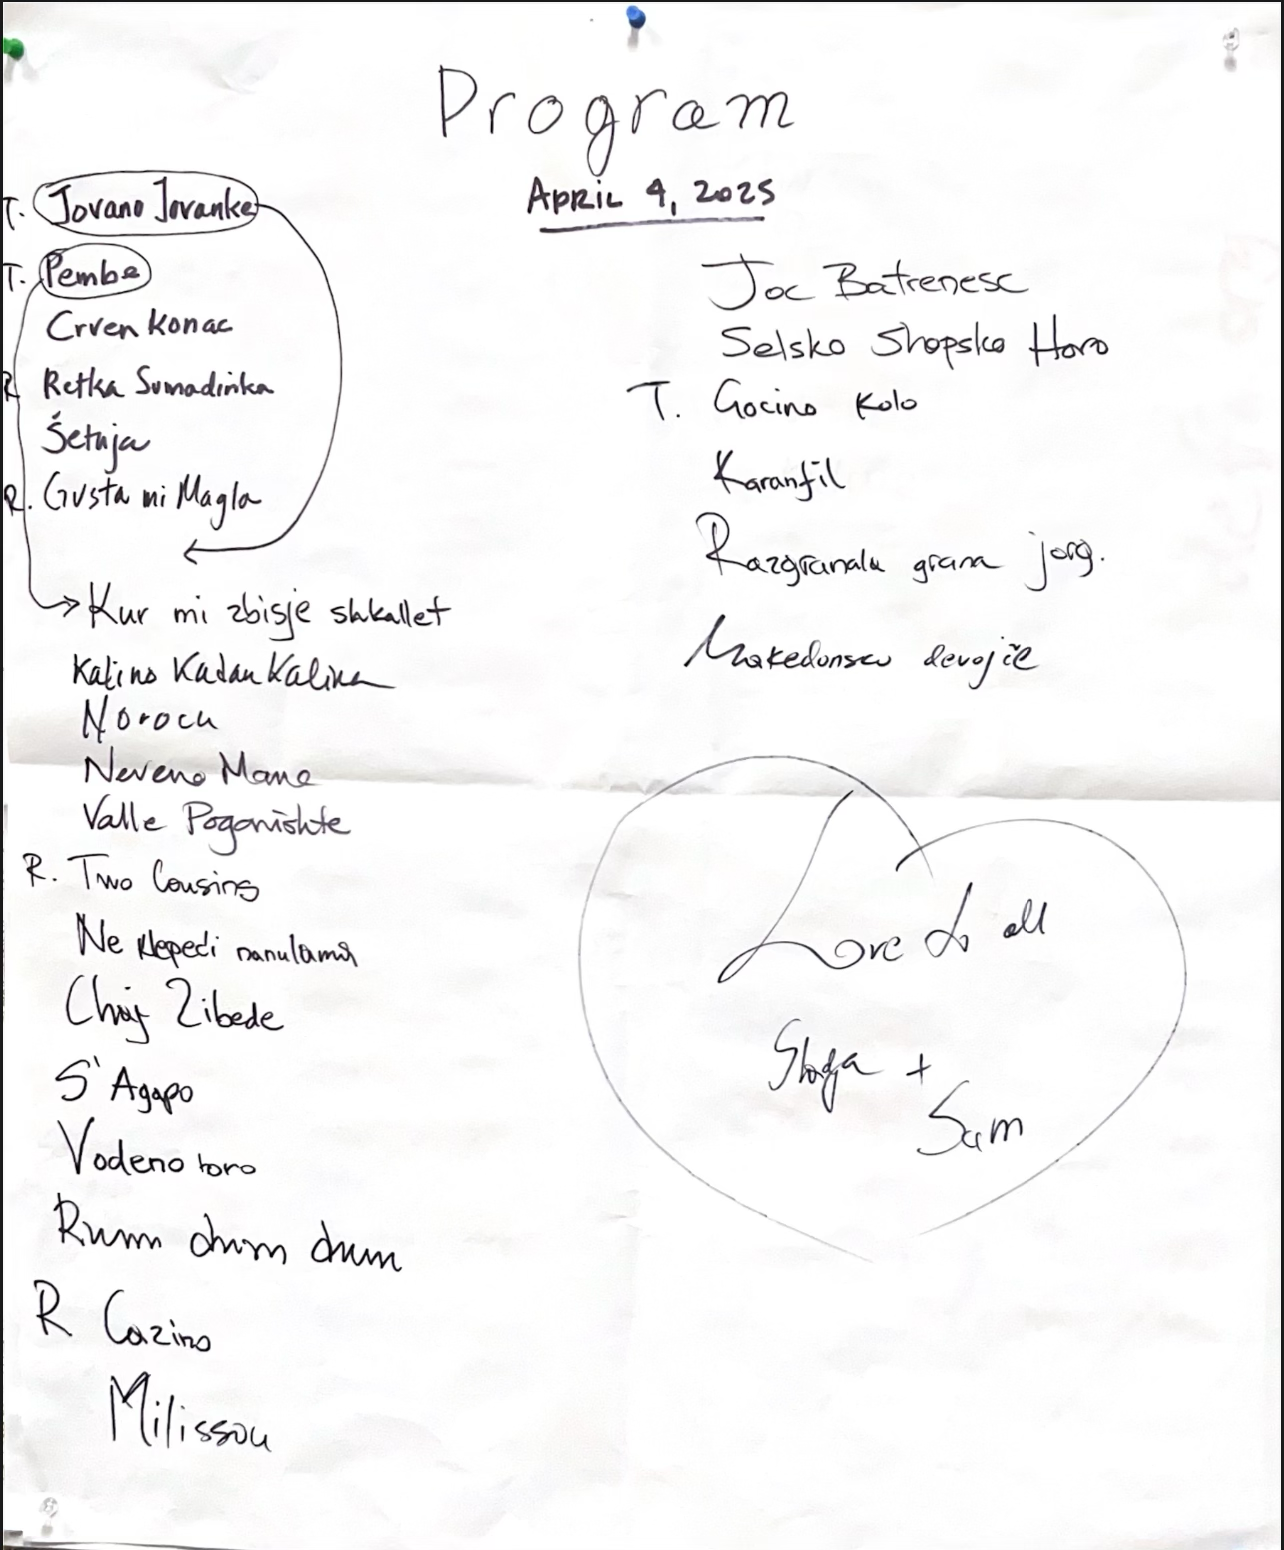 Program
APRIL 4, 2025
T. Jovano Jovanke
T. Pembe
Crven Konac
R Retka Sumadinka
Šetnja
R. Gusta mi Magla
Kur mi zbisje shkallet
Kalino Kadan Kalina
Noroc
Neveno Mome
Valle Pogonishte
R. Two Cousins
Ne klepeći nanulama
Chaj Zibede
S'Agapo
Vodeno horo
Rum dum dum
R Cazino
Milissou
Joc Batrenesc
Selsko Shopsko Horo
T. Gocino Kolo
Karanfil
Razgranala grana jorg.
Makedonsko devojče
Love to all
Sloga +
Sam